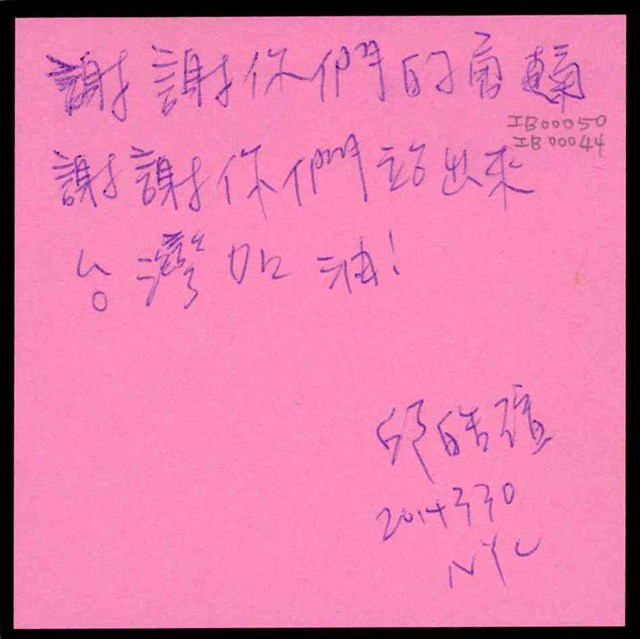 謝謝你們的勇敢
IB00050
IB00044
謝謝你們站出來
台灣加油!
邱皓
2014 3 30
NYC